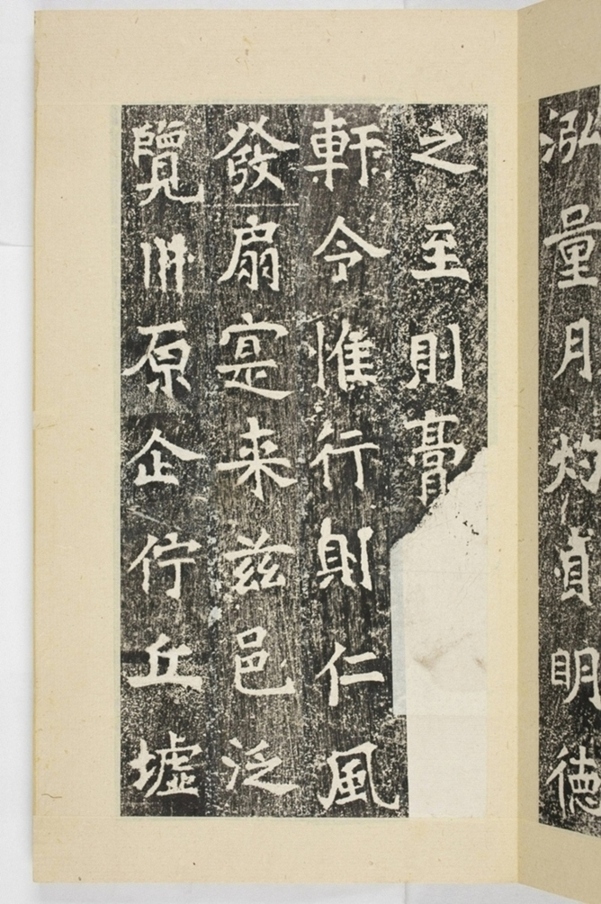 泓量月灼貞明德
之至則膏
軒令惟行仁風
發扇寔来茲邑泛
覽州原企佇丘墟